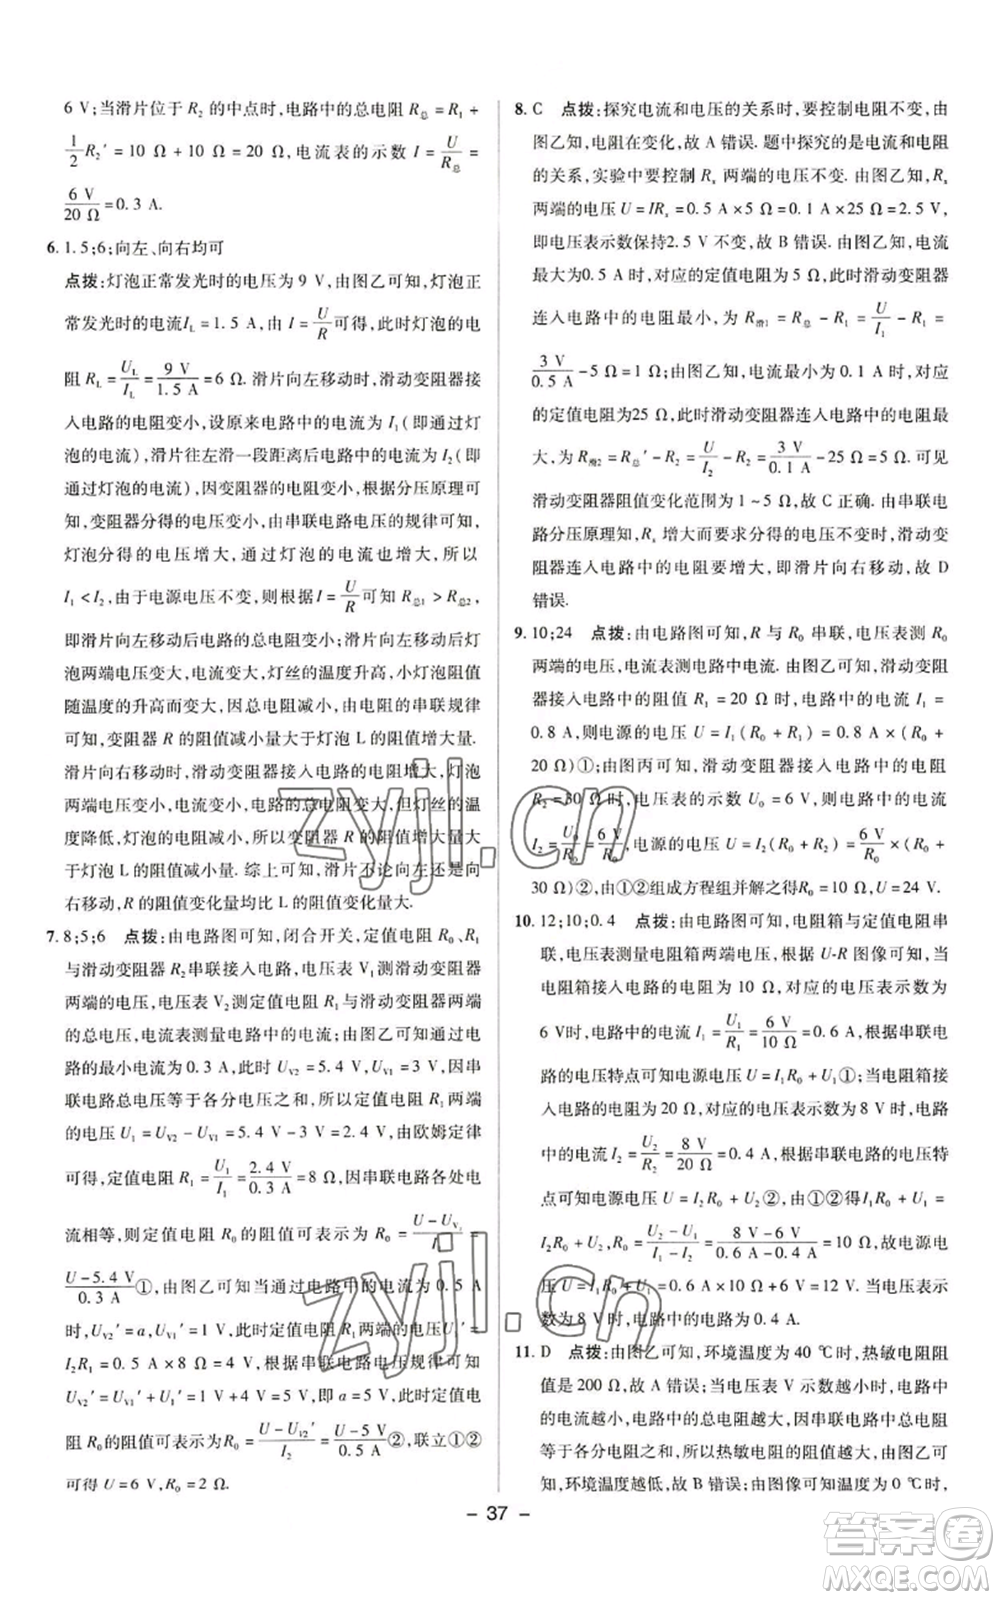 6 V;当滑片位于 R₂ 的中点时,电路中的总电阻 R总 = R₁ +
1/2 R₂′ = 10 Ω + 10 Ω = 20 Ω,电流表的示数 I = U/R总 =
6 V/20 Ω = 0.3 A.
6. 1.5;6;向左、向右均可
点拨:灯泡正常发光时的电压为 9 V,由图乙可知,灯泡正
常发光时的电流 I_L = 1.5 A,由 I = U/R 可得,此时灯泡的电
阻 R_L = U_L/I_L = 9 V/1.5 A = 6 Ω. 滑片向左移动时,滑动变阻器接
入电路的电阻变小,设原来电路中的电流为 I₁(即通过灯
泡的电流),滑片往左滑一段距离后电路中的电流为 I₂(即
通过灯泡的电流),因变阻器的阻值变小,根据分压原理可
知,变阻器分得的电压变小,由串联电路电压的规律可知,
灯泡分得的电压增大,通过灯泡的电流增大,所以
I₁ < I₂,由于电源电压不变,根据 I = U/R 可知 R总1 > R总2,
即滑片向左移动后电路的总电阻变小;滑片向左移动后灯
泡两端电压变大,电流变大,灯丝的温度升高,小灯泡阻值
随温度的升高而变大,因总电阻减小,由电阻的串联规律
可知,变阻器 R 的阻值减小量大于灯泡 L 的阻值增大量.
滑片向右移动时,滑动变阻器接入电路的电阻增大,灯泡
两端电压变小,电流变小,电路的总电阻变大,灯泡的温
度降低,灯泡的电阻减小,所以变阻器 R 的阻值增大量大
于灯泡 L 的阻值减小量. 综上可知,滑片不论向左还是
向右移动,R 的阻值变化量均比 L 的阻值变化量大.
7. 8;5;6 点拨:由电路图可知,闭合开关,定值电阻 R₀、R₁
与滑动变阻器 R₂ 串联接入电路,电压表 V₁ 测滑动变阻器
两端的电压,电压表 V₂ 测定值电阻 R₁ 与滑动变阻器两端
的总电压,电流表测量电路中的电流;由图乙可知通过电
路的最小电流为 0.3 A,此时 U_V2 = 5.4 V,U_V1 = 3 V,因串
联电路总电压等于各分电压之和,所以定值电阻 R₁ 两端
的电压 U₁ = U_V2 − U_V1 = 5.4 V − 3 V = 2.4 V,由欧姆定律
可得,定值电阻 R₁ = U₁/I₁ = 2.4 V/0.3 A = 8 Ω,因串联电路各处电
流相等,则定值电阻 R₀ 的阻值可表示为 R₀ = (U − U_V2)/I₁ =
(U − 5.4 V)/0.3 A ①,由图乙可知当通过电路中的电流为 0.5 A
时,U_V2′ = a,U_V1′ = 1 V,此时定值电阻 R₁ 两端的电压 U₁′ =
I₂R₁ = 0.5 A × 8 Ω = 4 V,根据串联电路电压规律可得
U_V2′ = U_V1′ + U₁′ = 1 V + 4 V = 5 V,即 a = 5 V,此时定值电
阻 R₀ 的阻值可表示为 R₀ = (U − U_V2′)/I₂ = (U − 5 V)/0.5 A ②,联立①②
可得 U = 6 V,R₀ = 2 Ω.
8. C 点拨:探究电流和电压的关系时,要控制电阻不变,由
图乙知,电阻在变化,故 A 错误. 题中探究的是电流和电阻
的关系,实验中要控制 Rₓ 两端的电压不变. 由图乙知,Rₓ
两端的电压 U = IRₓ = 0.5 A × 5 Ω = 0.1 A × 25 Ω = 2.5 V,
即电压表示数保持2.5 V 不变,故 B 错误. 由图乙知,电流
最大为0.5 A 时,对应的定值电阻为 5 Ω,此时滑动变阻器
连入电路中的电阻最小,为 R滑1 = R总 − R₁ = U/I₁ − R₁ =
3 V/0.5 A − 5 Ω = 1 Ω;由图乙知,电流最小为 0.1 A 时,对应
的定值电阻为25 Ω,此时滑动变阻器连入电路中的电阻最
大,为 R滑2 = R总′ − R₂ = U/I₂ − R₂ = 3 V/0.1 A − 25 Ω = 5 Ω. 可见
滑动变阻器阻值变化范围为 1 ~ 5 Ω,故 C 正确. 由串联电
路分压原理知,Rₓ 增大而要求分得的电压不变时,滑动变
阻器连入电路中的电阻要增大,即滑片向右移动,故 D
错误.
9. 10;24 点拨:由电路图可知,R 与 R₀ 串联,电压表测 R₀
两端的电压,电流表测电路中电流. 由图乙可知,滑动变阻
器接入电路中的阻值 R₁ = 20 Ω 时,电路中的电流 I₁ =
0.8 A,则电源的电压 U = I₁(R₀ + R₁) = 0.8 A × (R₀ +
20 Ω)①;由图丙可知,滑动变阻器接入电路中的电阻
R₂ = 30 Ω 时,电压表的示数 U₀ = 6 V,则电路中的电流
I₂ = U₀/R₀ = 6 V/R₀,电源的电压 U = I₂(R₀ + R₂) = 6 V/R₀ × (R₀ +
30 Ω)②,由①②组成方程组并解之得R₀ = 10 Ω,U = 24 V.
10. 12;10;0.4 点拨:由电路图可知,电阻箱与定值电阻串
联,电压表测量电阻箱两端电压,根据 U-R 图像可知,当
电阻箱接入电路的电阻为 10 Ω,对应的电压表示数为
6 V时,电路中的电流 I₁ = U₁/R₁ = 6 V/10 Ω = 0.6 A,根据串联电
路的电压特点可知电源电压 U = I₁R₀ + U₁①;当电阻箱接
入电路的电阻为 20 Ω,对应的电压表示数为 8 V 时,电路
中的电流 I₂ = U₂/R₂ = 8 V/20 Ω = 0.4 A,根据串联电路的电压特
点可知电源电压 U = I₂R₀ + U₂②,由①②得I₁R₀ + U₁ =
I₂R₀ + U₂,即 R₀ = (U₂ − U₁)/(I₁ − I₂) = (8 V − 6 V)/(0.6 A − 0.4 A) = 10 Ω,故电源电
压 U = I₁R₀ + U₁ = 0.6 A × 10 Ω + 6 V = 12 V. 当电压表示
数为 8 V 时,电路中的电流为 0.4 A.
11. D 点拨:由图乙可知,环境温度为 40 ℃时,热敏电阻阻
值是 200 Ω,故 A 错误;当电压表 V 示数越小时,电路中
的电流越小,电路中的总电阻越大,因串联电路中总电阻
等于各分电阻之和,所以热敏电阻的阻值越大,由图乙可
知,环境温度越低,故 B 错误;由图像可知温度为 0 ℃时,
- 37 -
zyjl.cn
zyjl.cn
答案卷
MXQE.COM